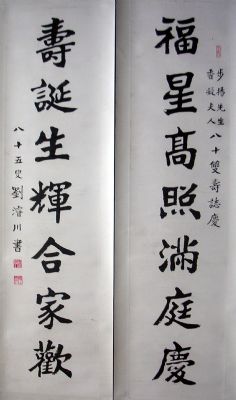 福星高照滿庭慶
步揚先生
八十雙壽誌慶
夫人
壽誕生輝合家歡
八十五叟劉濬川書